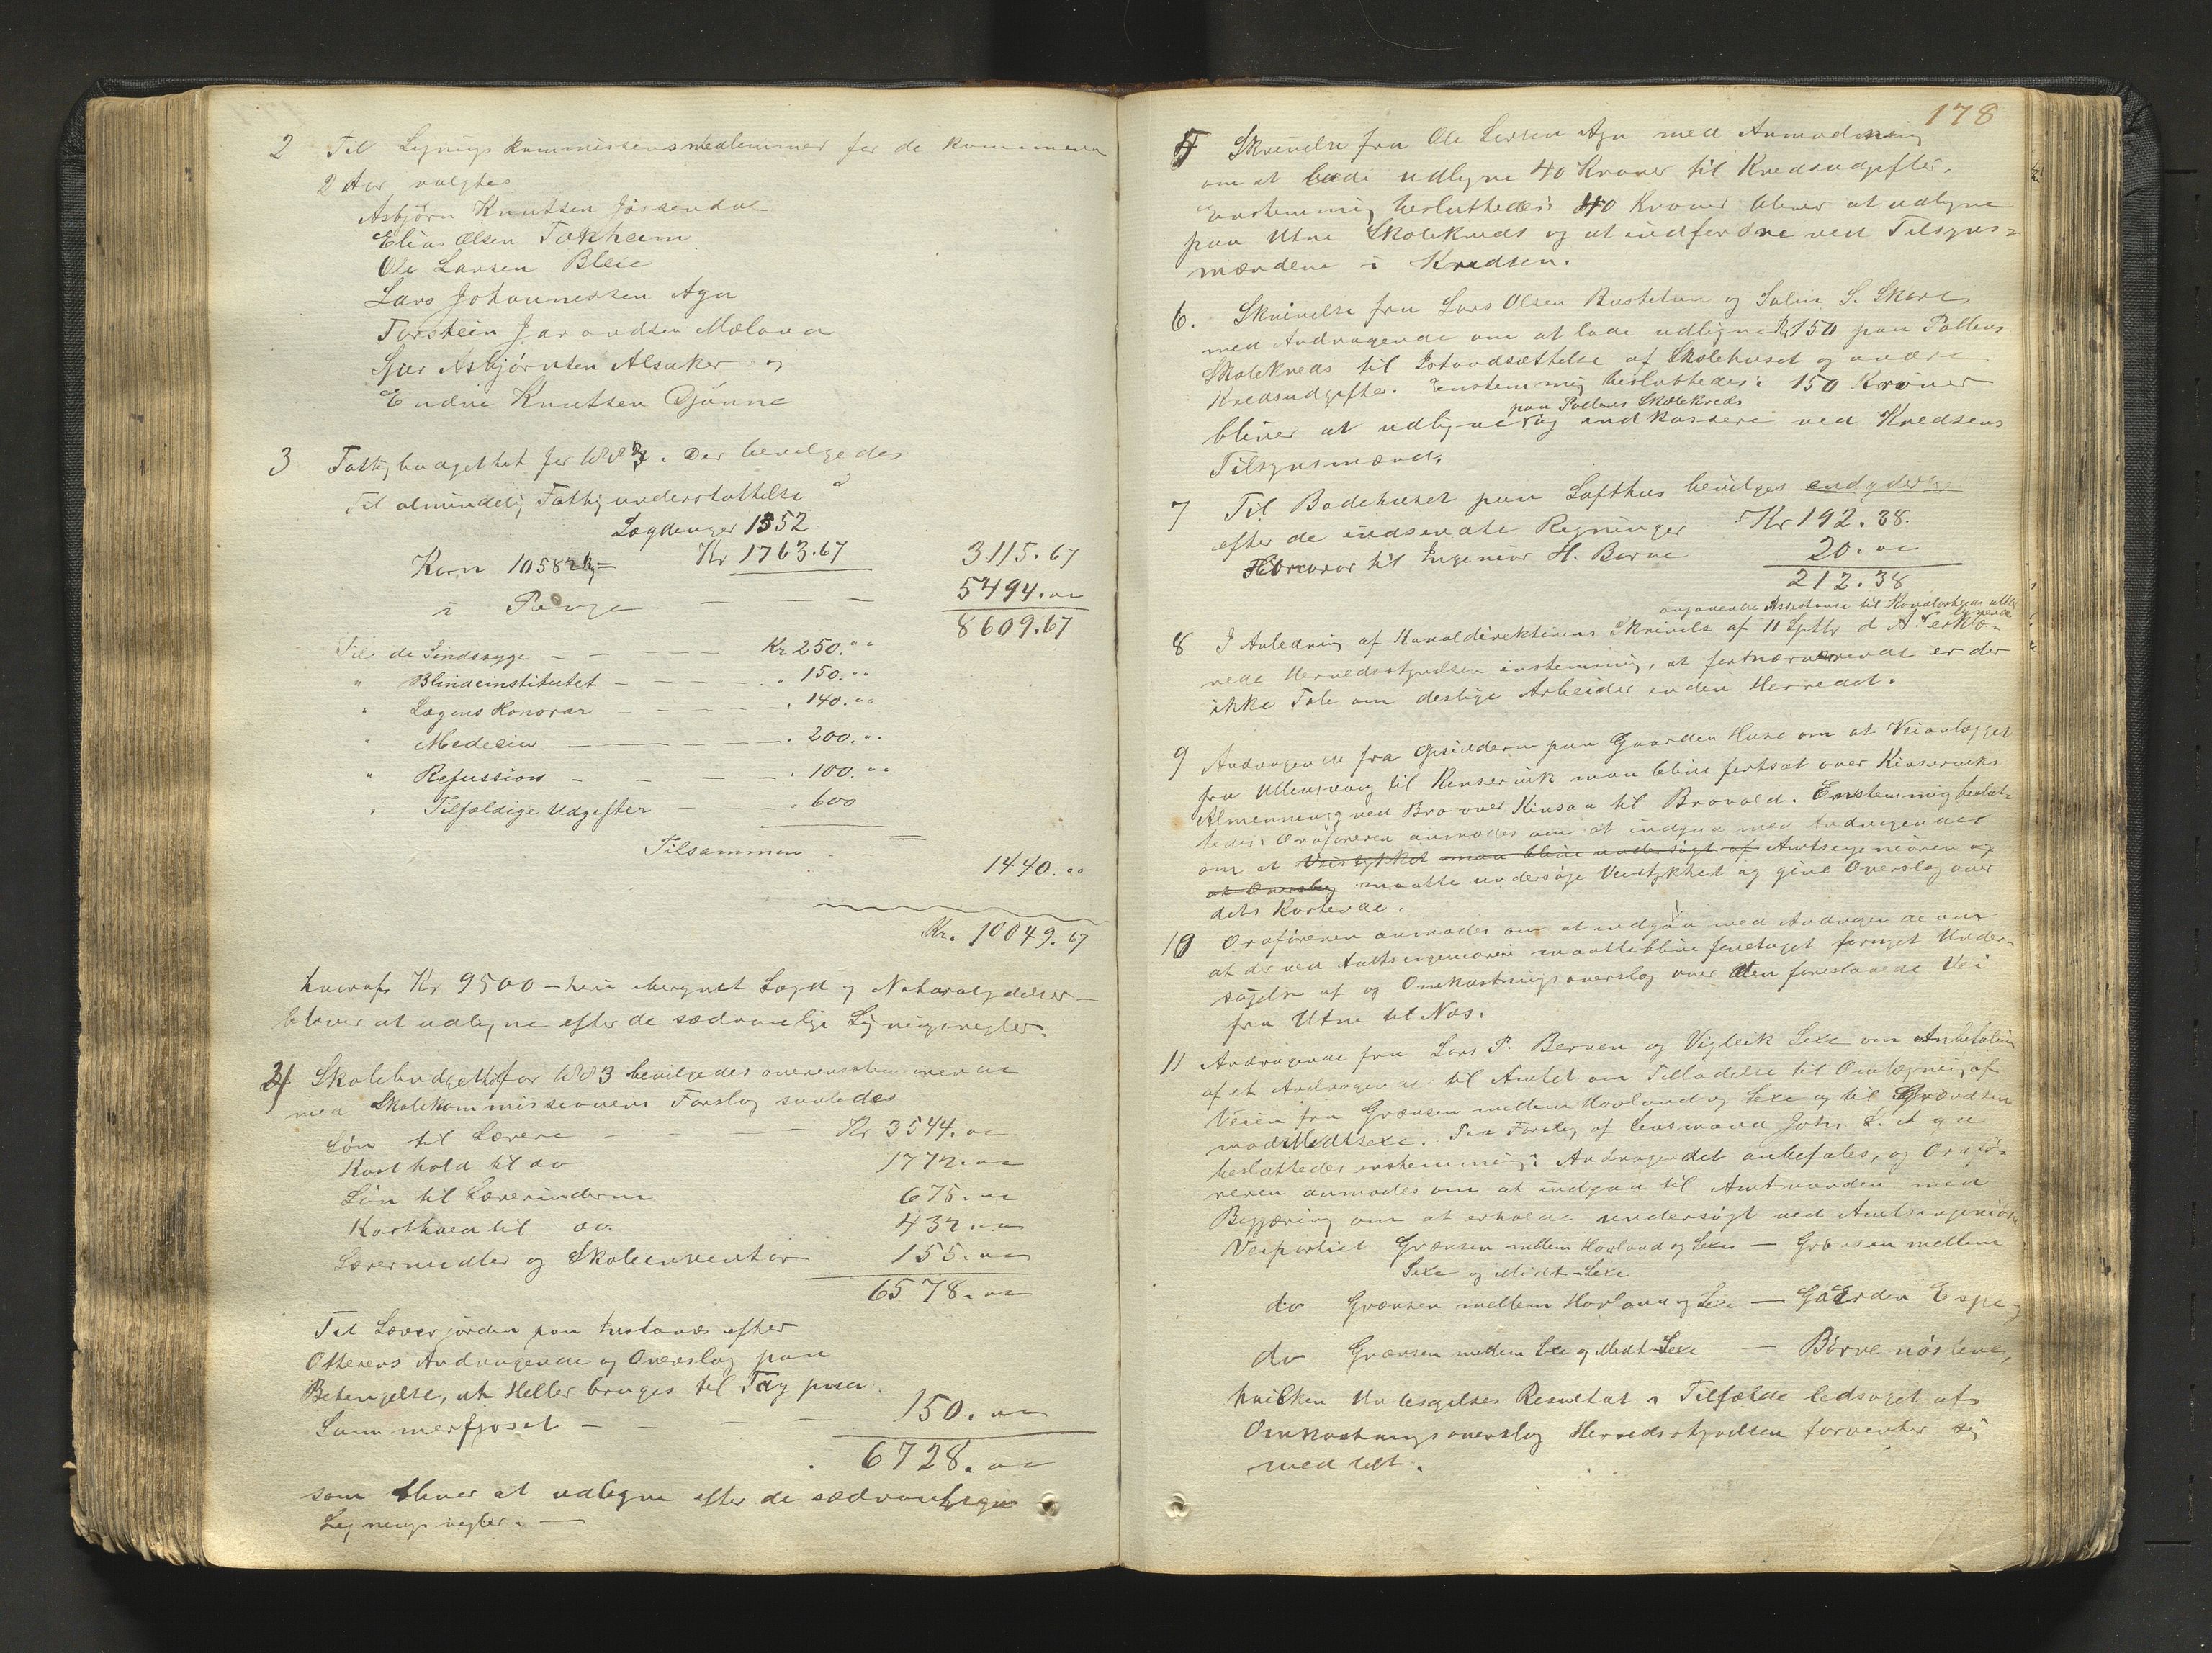 2 Til Ligningskommissionsmedlemmer for de kommende
2 Aar valgtes
Asbjørn Knutsen Jøssendal
Elias Olsen Tokheim
Ole Larsen Bleie
Lars Johannessen Aga
Torstein Jarandsen Mæland
Sjur Asbjørnsen Alsaker og
Endre Knutsen Djønne
3 Fattigbudgettet for 1883. Der bevilgedes
Til almindelig Fattigunderstøttelse
Lægdenger 1352
Korn 10582 kg = Kr 1763.67 3115.67
i Penge - - - 5494.00
8609.67
Til de Sindssyge - - - Kr 250.00
" Blindeinstitutet - - - " 150.00
" Lægens Honorar - - - " 140.00
" Medecin - - - " 200.00
" Refussion - - - " 100.00
" Tilfældige Udgifter - - - " 600
Tilsammen - - 1440.00
Kr. 10049.67
hvoraf Kr 9500 - heri iberegnet Lægd og Naturalydelser -
bliver at udligne efter de sædvanlige Ligningsregler.
4 Skolebudgettet for 1883 bevilgedes overensstemmende
med Skolekommissionens Forslag saaledes
Løn til Lærere - - - Kr 3544.00
Kosthold til do 1772.00
Løn til Lærerinderne 675.00
Kosthold til do. 432.00
Lærermidler og Skoleinventar 155.00
6578.00
Til Lærerjorden paa Instanæs efter
Otterens Andragende og Overslag paa
Betingelse, at Heller bruges til Tag paa
Sommerfjøset - - - 150.00
6728.00
som bliver at udligne efter de sædvanlige
Ligningsregler. -
178
5 Skrivelse fra Ole Larsen Aga med Anmodning
om at lade udligne 40 Kroner til Kredsudgifter.
Enstemmig besluttedes: 40 Kroner bliver at udligne
paa Utne Skolekreds og at indfordre ved Tilsyns-
mændene i Kredsen.
6. Skrivelse fra Lars Olsen Bustetun og Salm. S. Skare
med Andragende om at lade udligne Kr 150 paa Pollens
Skolekreds til Istandsættelse af Skolehuset og andre
Kredsudgifter. Enstemmig besluttedes: 150 Kroner
paa Pollens Skolekreds
bliver at udligne og indkassere ved Kredsens
Tilsynsmænd.
7 Til Badehuset paa Lofthus bevilges endydeligt
efter de indsendte Regninger Kr 192.38.
Honorar til Ingeniør H. Barne 20.00
212.38
angaaende Assistanse til
8 I Anledning af Kanaldirektørens Skrivelse af 11 Septbr d. A. erklæ-
rede Herredsstyrelsen enstemmig, at fortnærværende er der
ikke Tale om deslige Arbeider inden Herredet.
9 Andragende fra Opsidderne paa Gaarden Huse om at Veianlægget
fra Ullensvang til Kinservik maa blive fortsat over Kinserviks
Almenning ved Bro over Kinsaa til Bravold. Enstemmig beslut-
tedes: Ordføreren anmodes om at indgaa med Andragende
om at Veistykket maa blive undersøgt af Amtsingeniøren og
at Overslag maatte undersøge Veistykket og give Overslag over
dets Kostende.
10 Ordføreren anmodes om at indgaa med Andragende om
at der ved Amtsingeniøren maatte blive foretaget fornyet Under-
søgelse af og Omkostningsoverslag over den foreslaaede Vei
fra Utne til Næs.
11 Andragende fra Lars P. Berven og Vigleik Sexe om Anbefaling
af et Andragende til Amtet om Tilladelse til Omlægning af
Veien fra Grænsen mellem Hovland og Sexe og til Grændsen
mod Midtsexe. Paa Forslag af Lensmand Johs. L. Aga
besluttedes enstemmig: Andragendet anbefales, og Ordfø-
reren anmodes om at indgaa til Amtmanden med
Begjæring om at erholde undersøgt ved Amtsingeniøren
Veipartiet Grænsen mellem Hovland og Sexe - Grænsen mellem
Sexe og Midt-Sexe
do Grænsen mellem Hovland og Sexe - Gaarden Espe og
do Grænsen mellem Sexe og Midt-Sexe - Børvenøstene,
hvilken Undersøgelses Resultat i Tilfælde ledsaget af
Omkostningsoverslag Herredsstyrelsen forventer sig
meddelt.